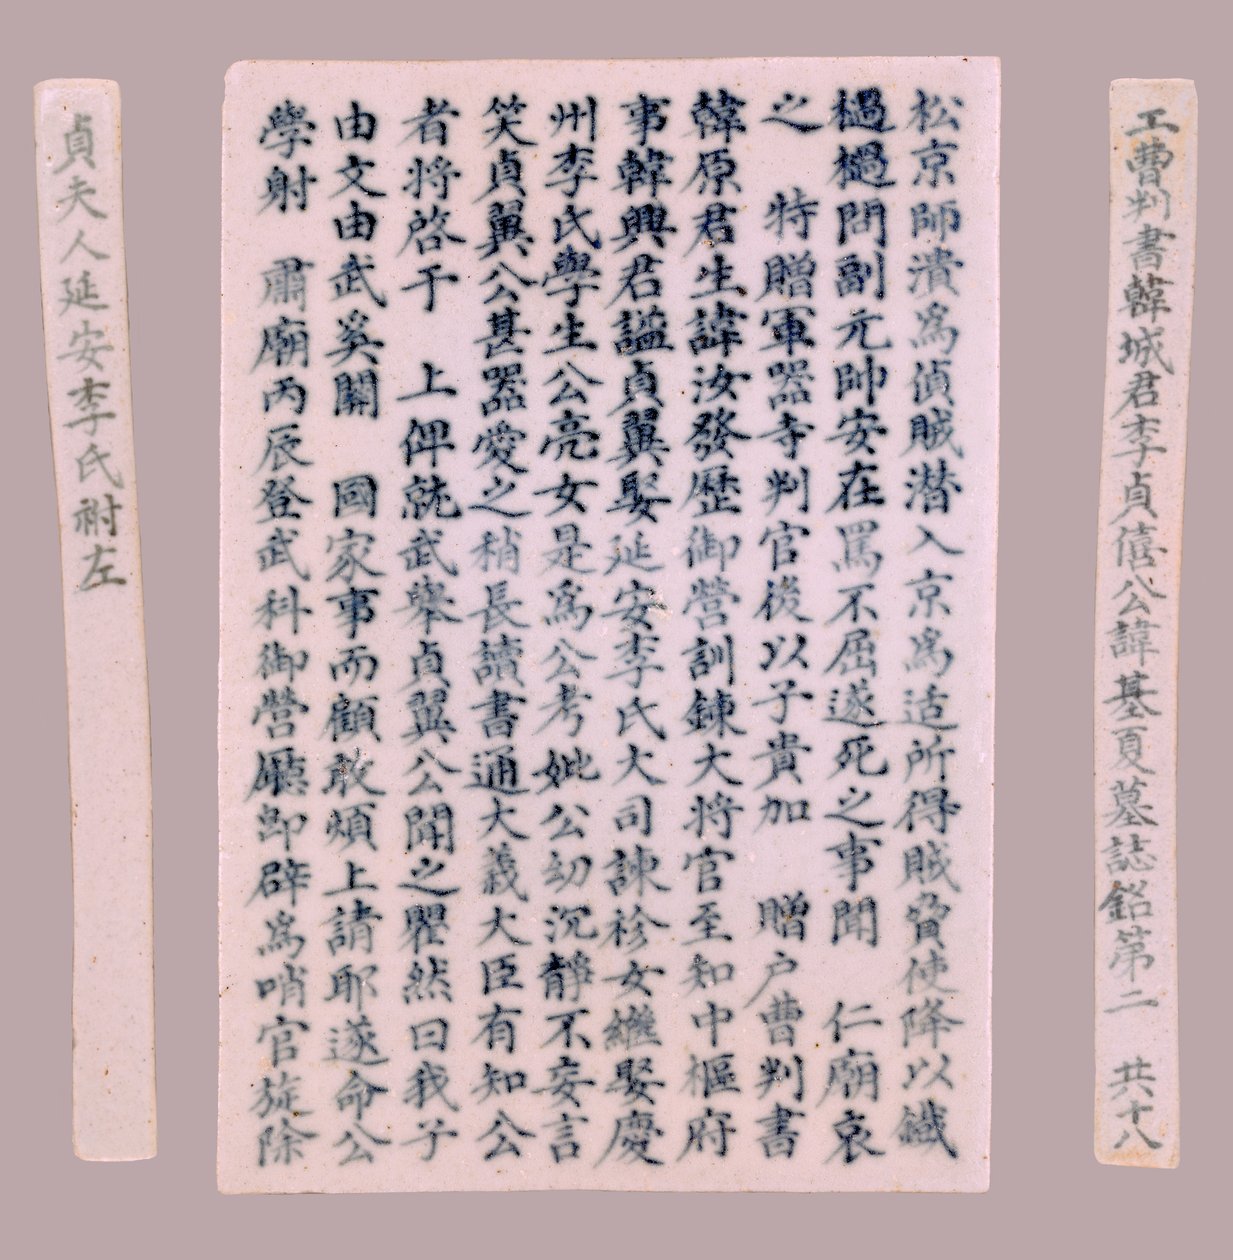 工曹判書韓城君李貞僖公諱基夏墓誌銘第二 共十八
松京師潰爲偵賊潜入京爲适所得賊脅使降以鐵
檛檛問副元帥安在罵不屈遂死之事聞 仁廟哀
之 特贈軍器寺判官後以子貴加 贈戶曹判書
韓原君生諱汝發歷御營訓鍊大將官至知中樞府
事韓興君諡貞翼娶延安李氏大司諫袗女繼娶慶
州李氏學生公亮女是爲公考妣公幼沉靜不妄言
笑貞翼公甚器愛之稍長讀書通大義大臣有知公
者將啓于 上俾就武擧貞翼公聞之瞿然曰我子
由文由武奚關 國家事而顧敢煩上請耶遂命公
學射 肅廟丙辰登武科御營廳卽辟爲哨官旋除
貞夫人延安李氏祔左